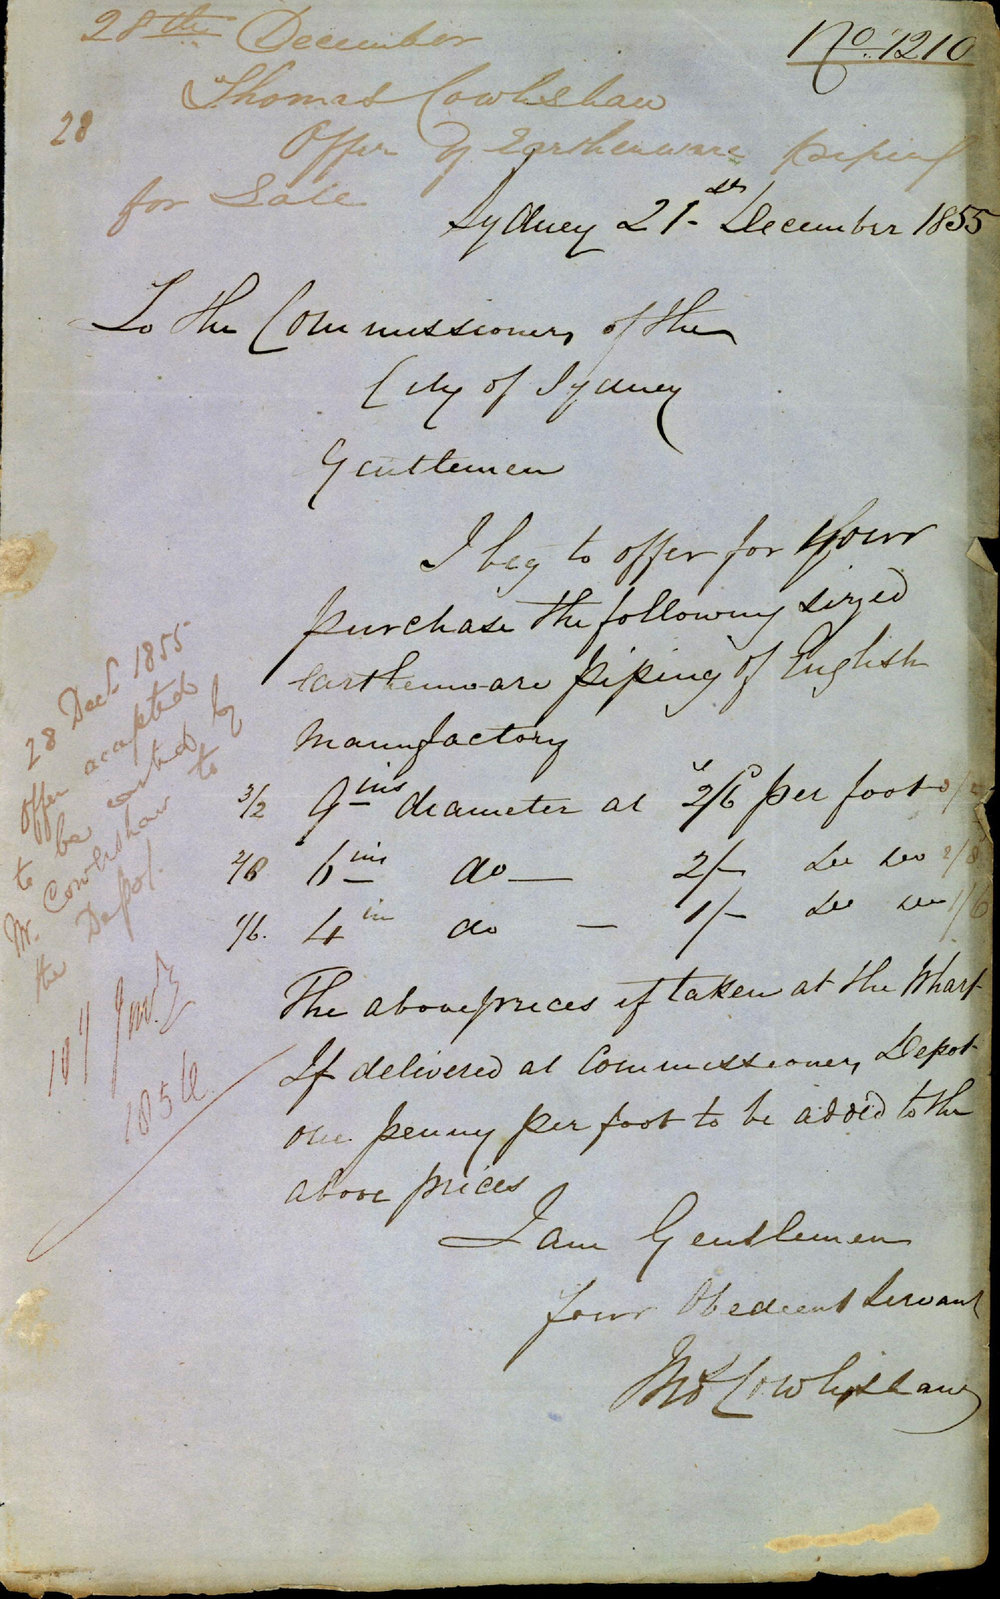 28th December
No. 1210
Thomas Cowlishaw
28
Offer of Earthenware piping
for Sale
Sydney 21st December 1855
To the Commissioners of the
City of Sydney
Gentlemen
I beg to offer for Your
purchase the following sized
earthenware piping of English
Manufactory
3/2 9 ins diameter at 2/6 per foot
2/8 6 ins do — 2/- do do 2/8
1/6. 4 in do — 1/- do do 1/6
The above prices if taken at the Wharf
If delivered at Commissioners Depot
one penny per foot to be added to the
above prices
I am Gentlemen
Your Obedient Servant
Thos Cowlishaw
28 Decr 1855
Offer accepted
to be carted by
Mr. Cowlishaw to
the Depot.
1856